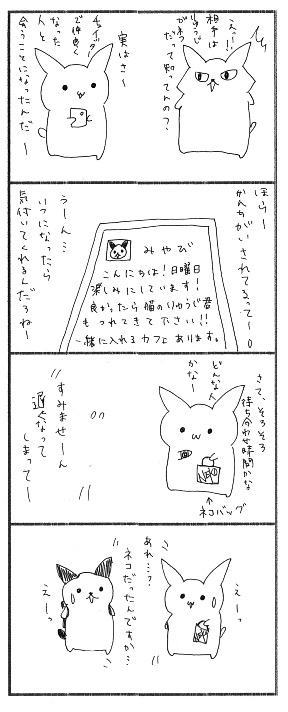 実はさ〜
チャイッターで仲良くなった人と
会うことになったんだ〜
えっ!!
相手は
りゅうじがネコだって知ってんの?
ほらー
かんちがいされてるって〜
みやび
こんにちは!日曜日
楽しみにしています!
良かったら猫のりゅうじ君
もつれてきて下さい!!
一緒に入れるカフェあります。
うーん…
いつになったら
気付いてくれるんだろねー
さて、そろそろ
待ち合わせ時間かな
どんな人かな〜
ネコバッグ
すみませーん
遅くなって
しまってー
えーっ
あれ…?
ネコだったんですか…
えーっ